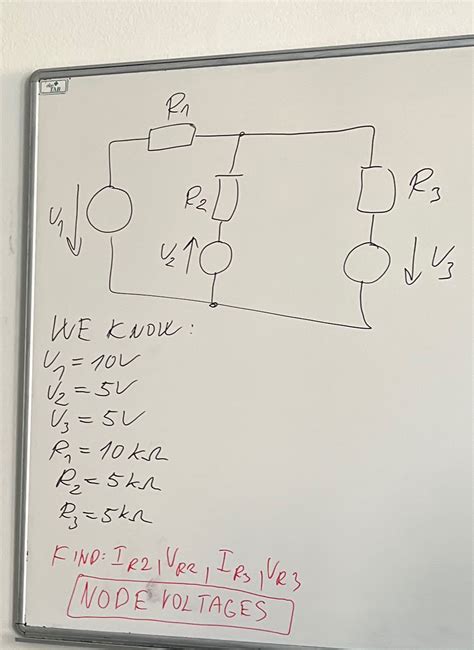 R1
R2
R3
V1
V2
V3
WE KNOW:
V1 = 10V
V2 = 5V
V3 = 5V
R1 = 10 kΩ
R2 = 5kΩ
R3 = 5kΩ
FIND: IR2, VR2, IR3, VR3
NODE VOLTAGES